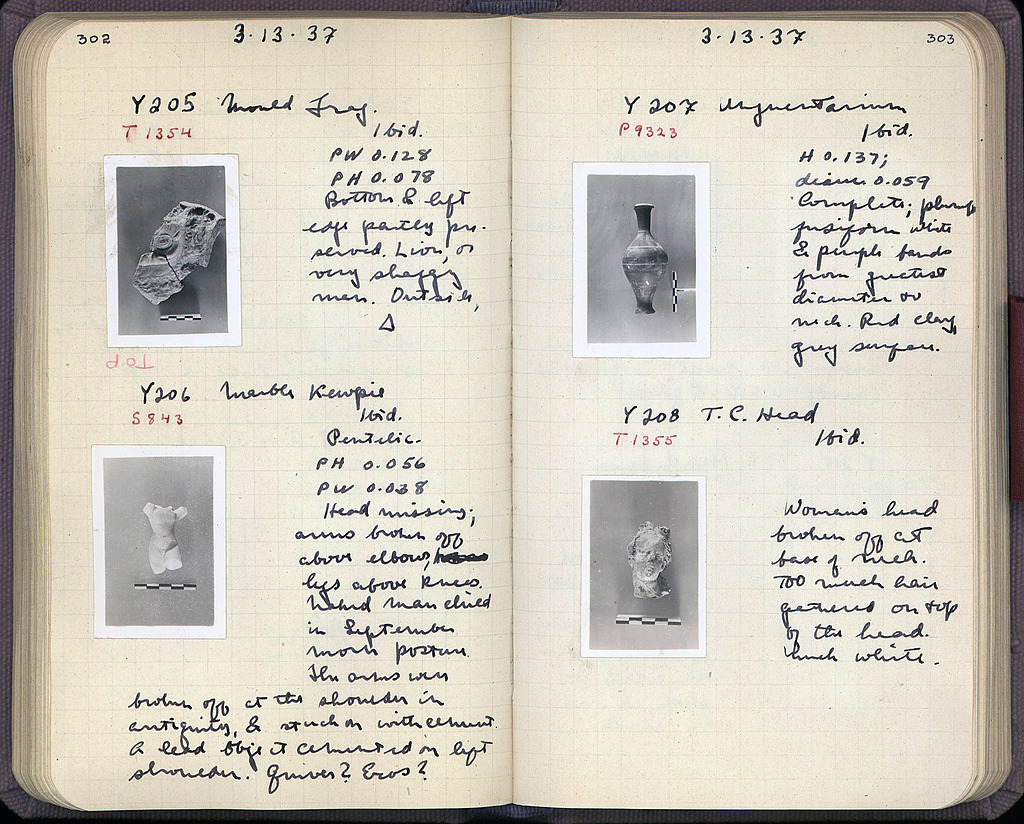 302
3·13·37
Y205 Mould Frag.
T 1354
Ibid.
PW 0.128
PH 0.078
Bottom & left
edge partly pre-
served. Lion, or
very shaggy
man. Outside,
Δ
Top
Y206 Marble Kewpie
S 843
Ibid.
Pentelic.
PH 0.056
PW 0.038
Head missing;
arms broken off
above elbows,
legs above knees.
Naked man child
in September
morn posture.
The arms were
broken off at the shoulder in
antiquity, & stuck on with cement.
A lead object cemented on left
shoulder. Quiver? Eros?
303
3·13·37
Y207 Unguentarium
P9323
Ibid.
H 0.137;
diam 0.059
Complete; plump
fusiform white
& purple bands
from greatest
diameter to
neck. Red clay,
grey surface.
Y208 T.C. Head
T1355
Ibid.
Woman's head
broken off at
base of neck.
Too much hair
gathered on top
of the head.
Much white.